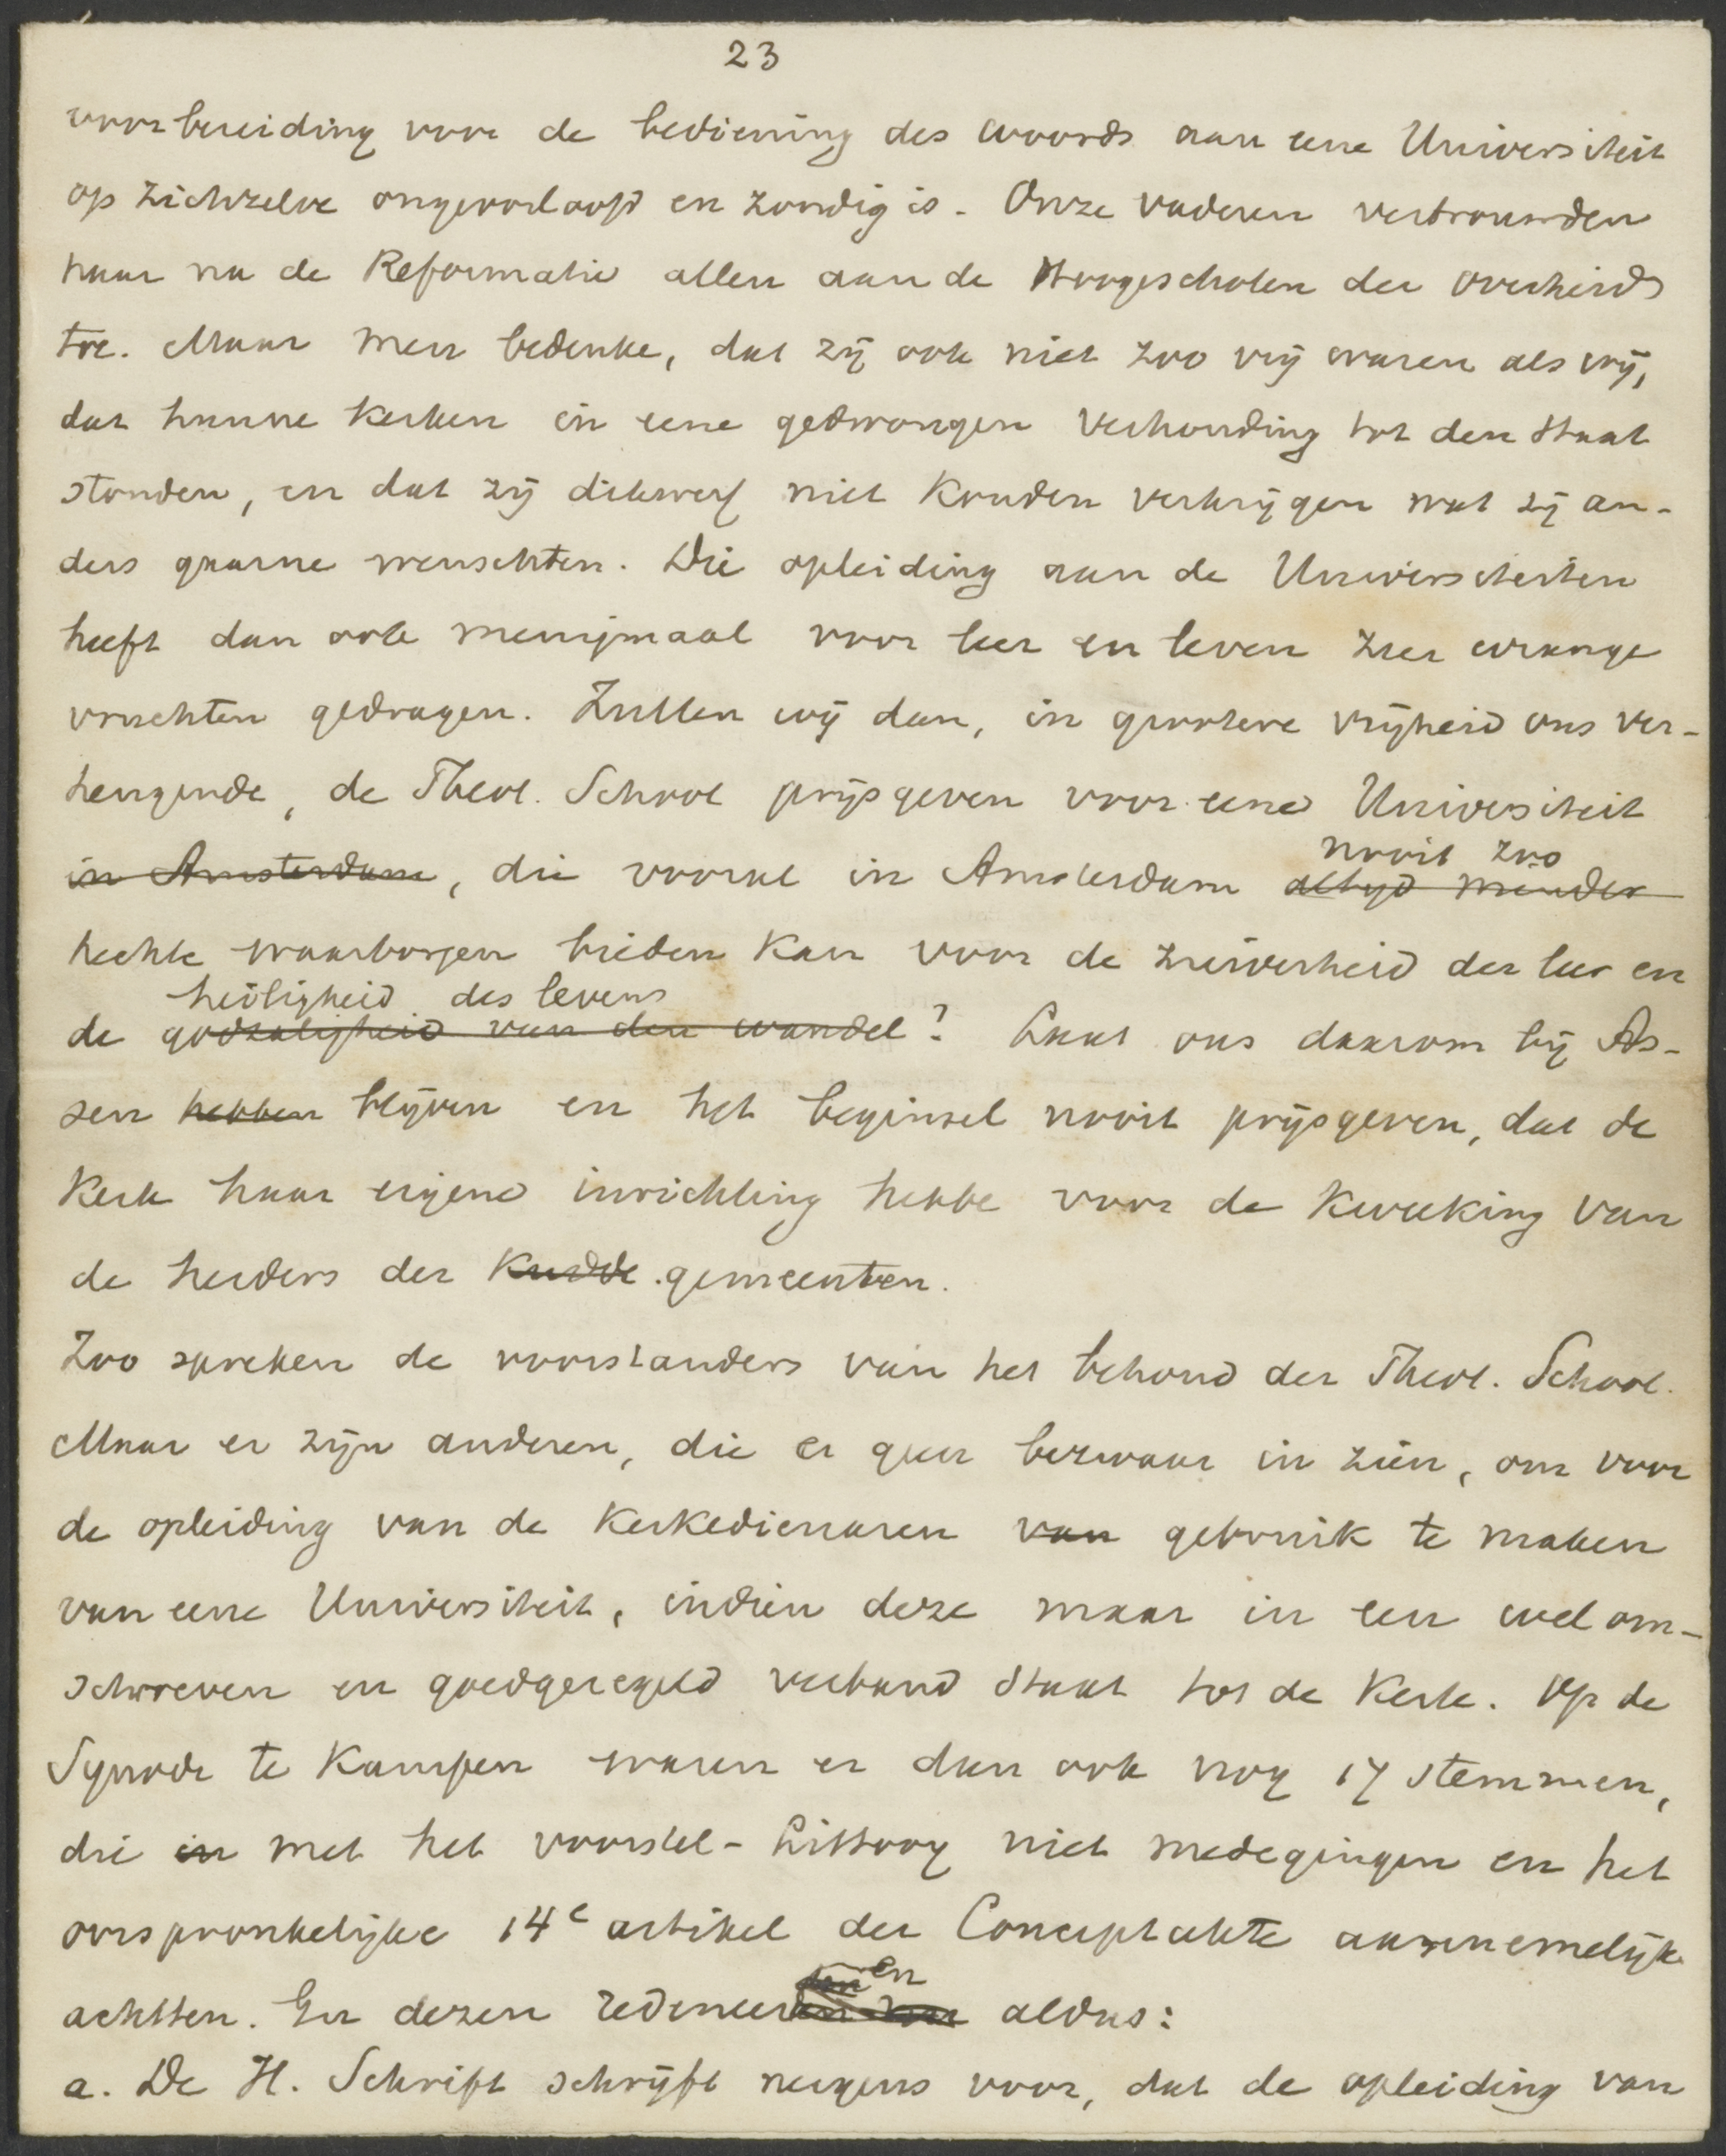 23
voorbereiding voor de bediening des woords aan eene Universiteit
op zichzelve ongeoorloofd en zondig is. Onze vaderen vertrouwden
haar na de Reformatie allen aan de Hoogescholen der overheid
toe. Maar men bedenke, dat zij ook niet zoo vrij waren als wij,
dat hunne kerken in eene gedwongen verhouding tot den Staat
stonden, en dat zij dikwerf niet konden verkrijgen wat zij an-
ders gaarne wenschten. Die opleiding aan de Universiteiten
heeft dan ook menigmaal voor leer en leven zeer wrange
vruchten gedragen. Zullen wij dan, in grootere vrijheid ons ver-
heugende, de Theol. School prijsgeven voor eene Universiteit
in Amsterdam, die vooral in Amsterdam altijd minder
nooit zoo
hechte waarborgen bieden kan voor de zuiverheid der leer en
heiligheid des levens
de godzaligheid van den wandel? Laat ons daarom bij As-
sen hebben blijven en het beginsel nooit prijsgeven, dat de
Kerk haar eigene inrichting hebbe voor de kweeking van
de herders der kudde gemeenten.
Zoo spreken de voorstanders van het behoud der Theol. School.
Maar er zijn anderen, die er geen bezwaar in zien, om voor
de opleiding van de Kerkedienaren van gebruik te maken
van eene Universiteit, indien deze maar in een welom-
schreven en goedgeregeld verband staat tot de Kerk. Op de
Synode te Kampen waren er dan ook nog 17 stemmen,
die in met het voorstel-Littooy niet medegingen en het
oorspronkelijke 14e artikel der Conceptakte aannemelijk
achtten. En dezen redeneeren aldus:
a. De H. Schrift schrijft nergens voor, dat de opleiding van